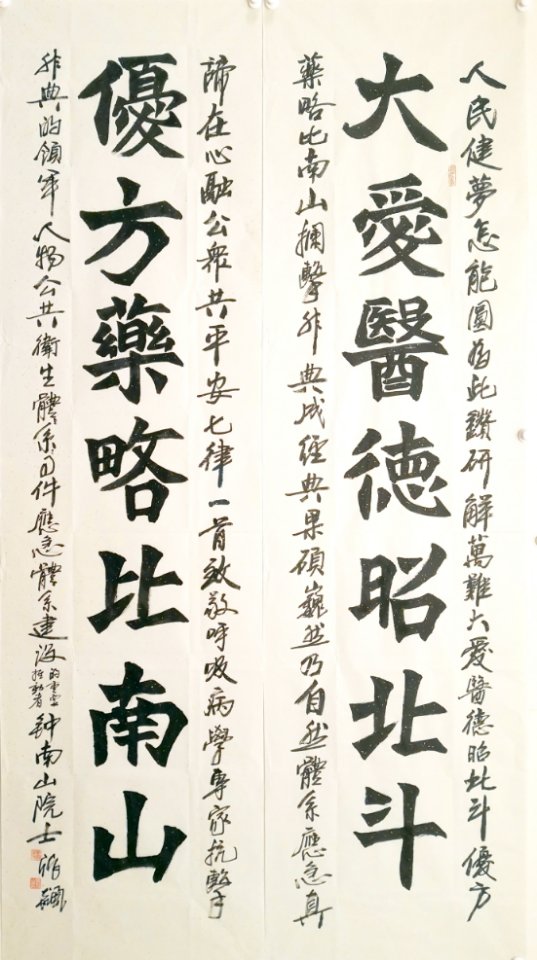 人民健夢怎能圓為此鑽研解萬難大愛醫德昭北斗優方
大愛醫德昭北斗
藥略比南山攔擊非典成經典果碩巍然乃自然體系應急真
諦在心融公衆共平安七律一首致敬呼吸病學專家抗擊
優方藥略比南山
非典的領軍人物公共衛生體系件應急體系建設的重要推動者钟南山院士